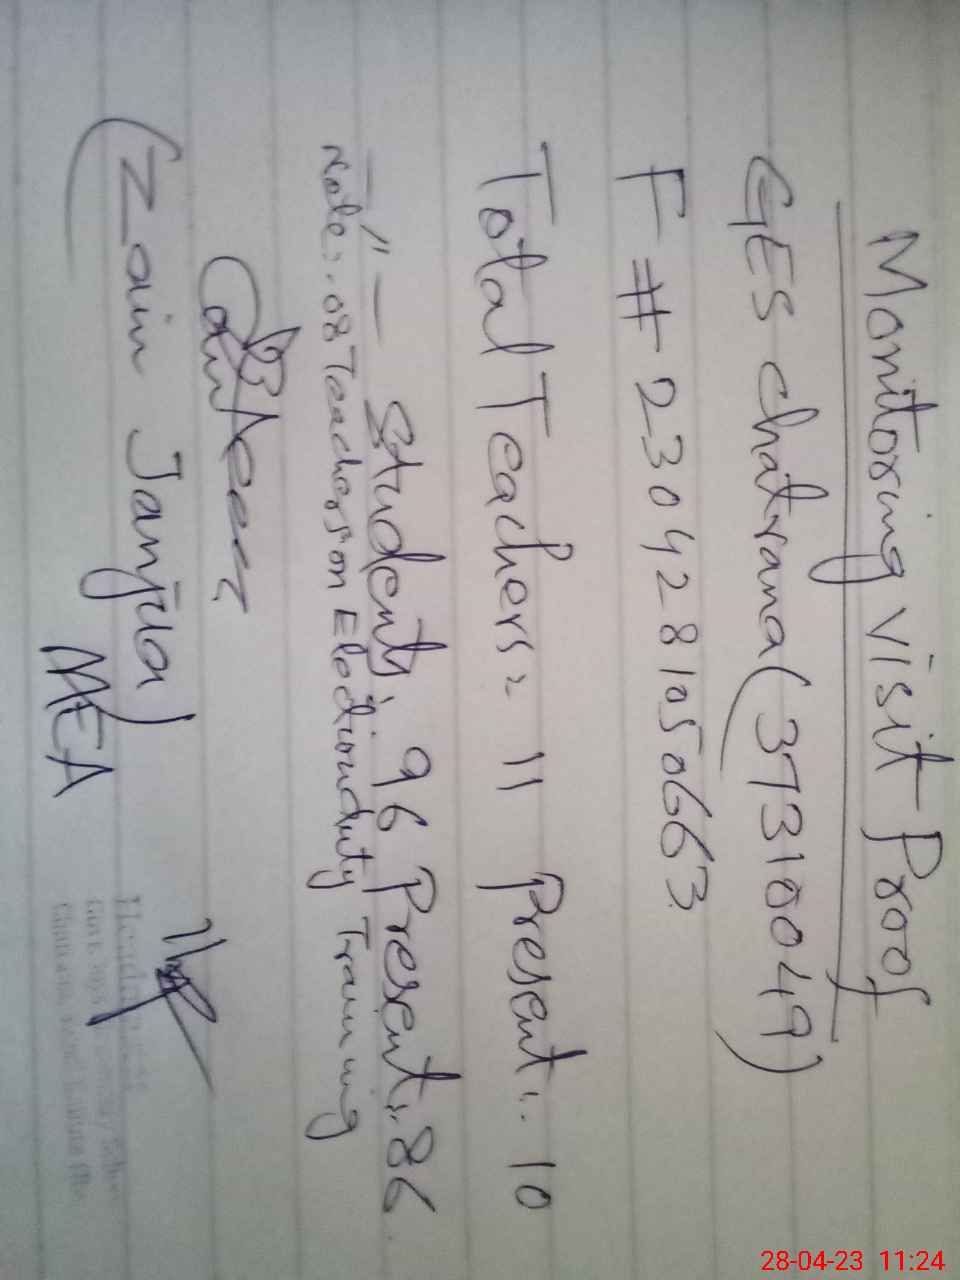 Monitoring visit Proof
GES chatrama (37310049)
F # 2304281050663
Total Teachers = 11 Present :. 10
-"- Students :. 96 Present :. 86
Note :. 08 Teachers on Election duty Training
(Zain Janjua)
MEA
28-04-23 11:24